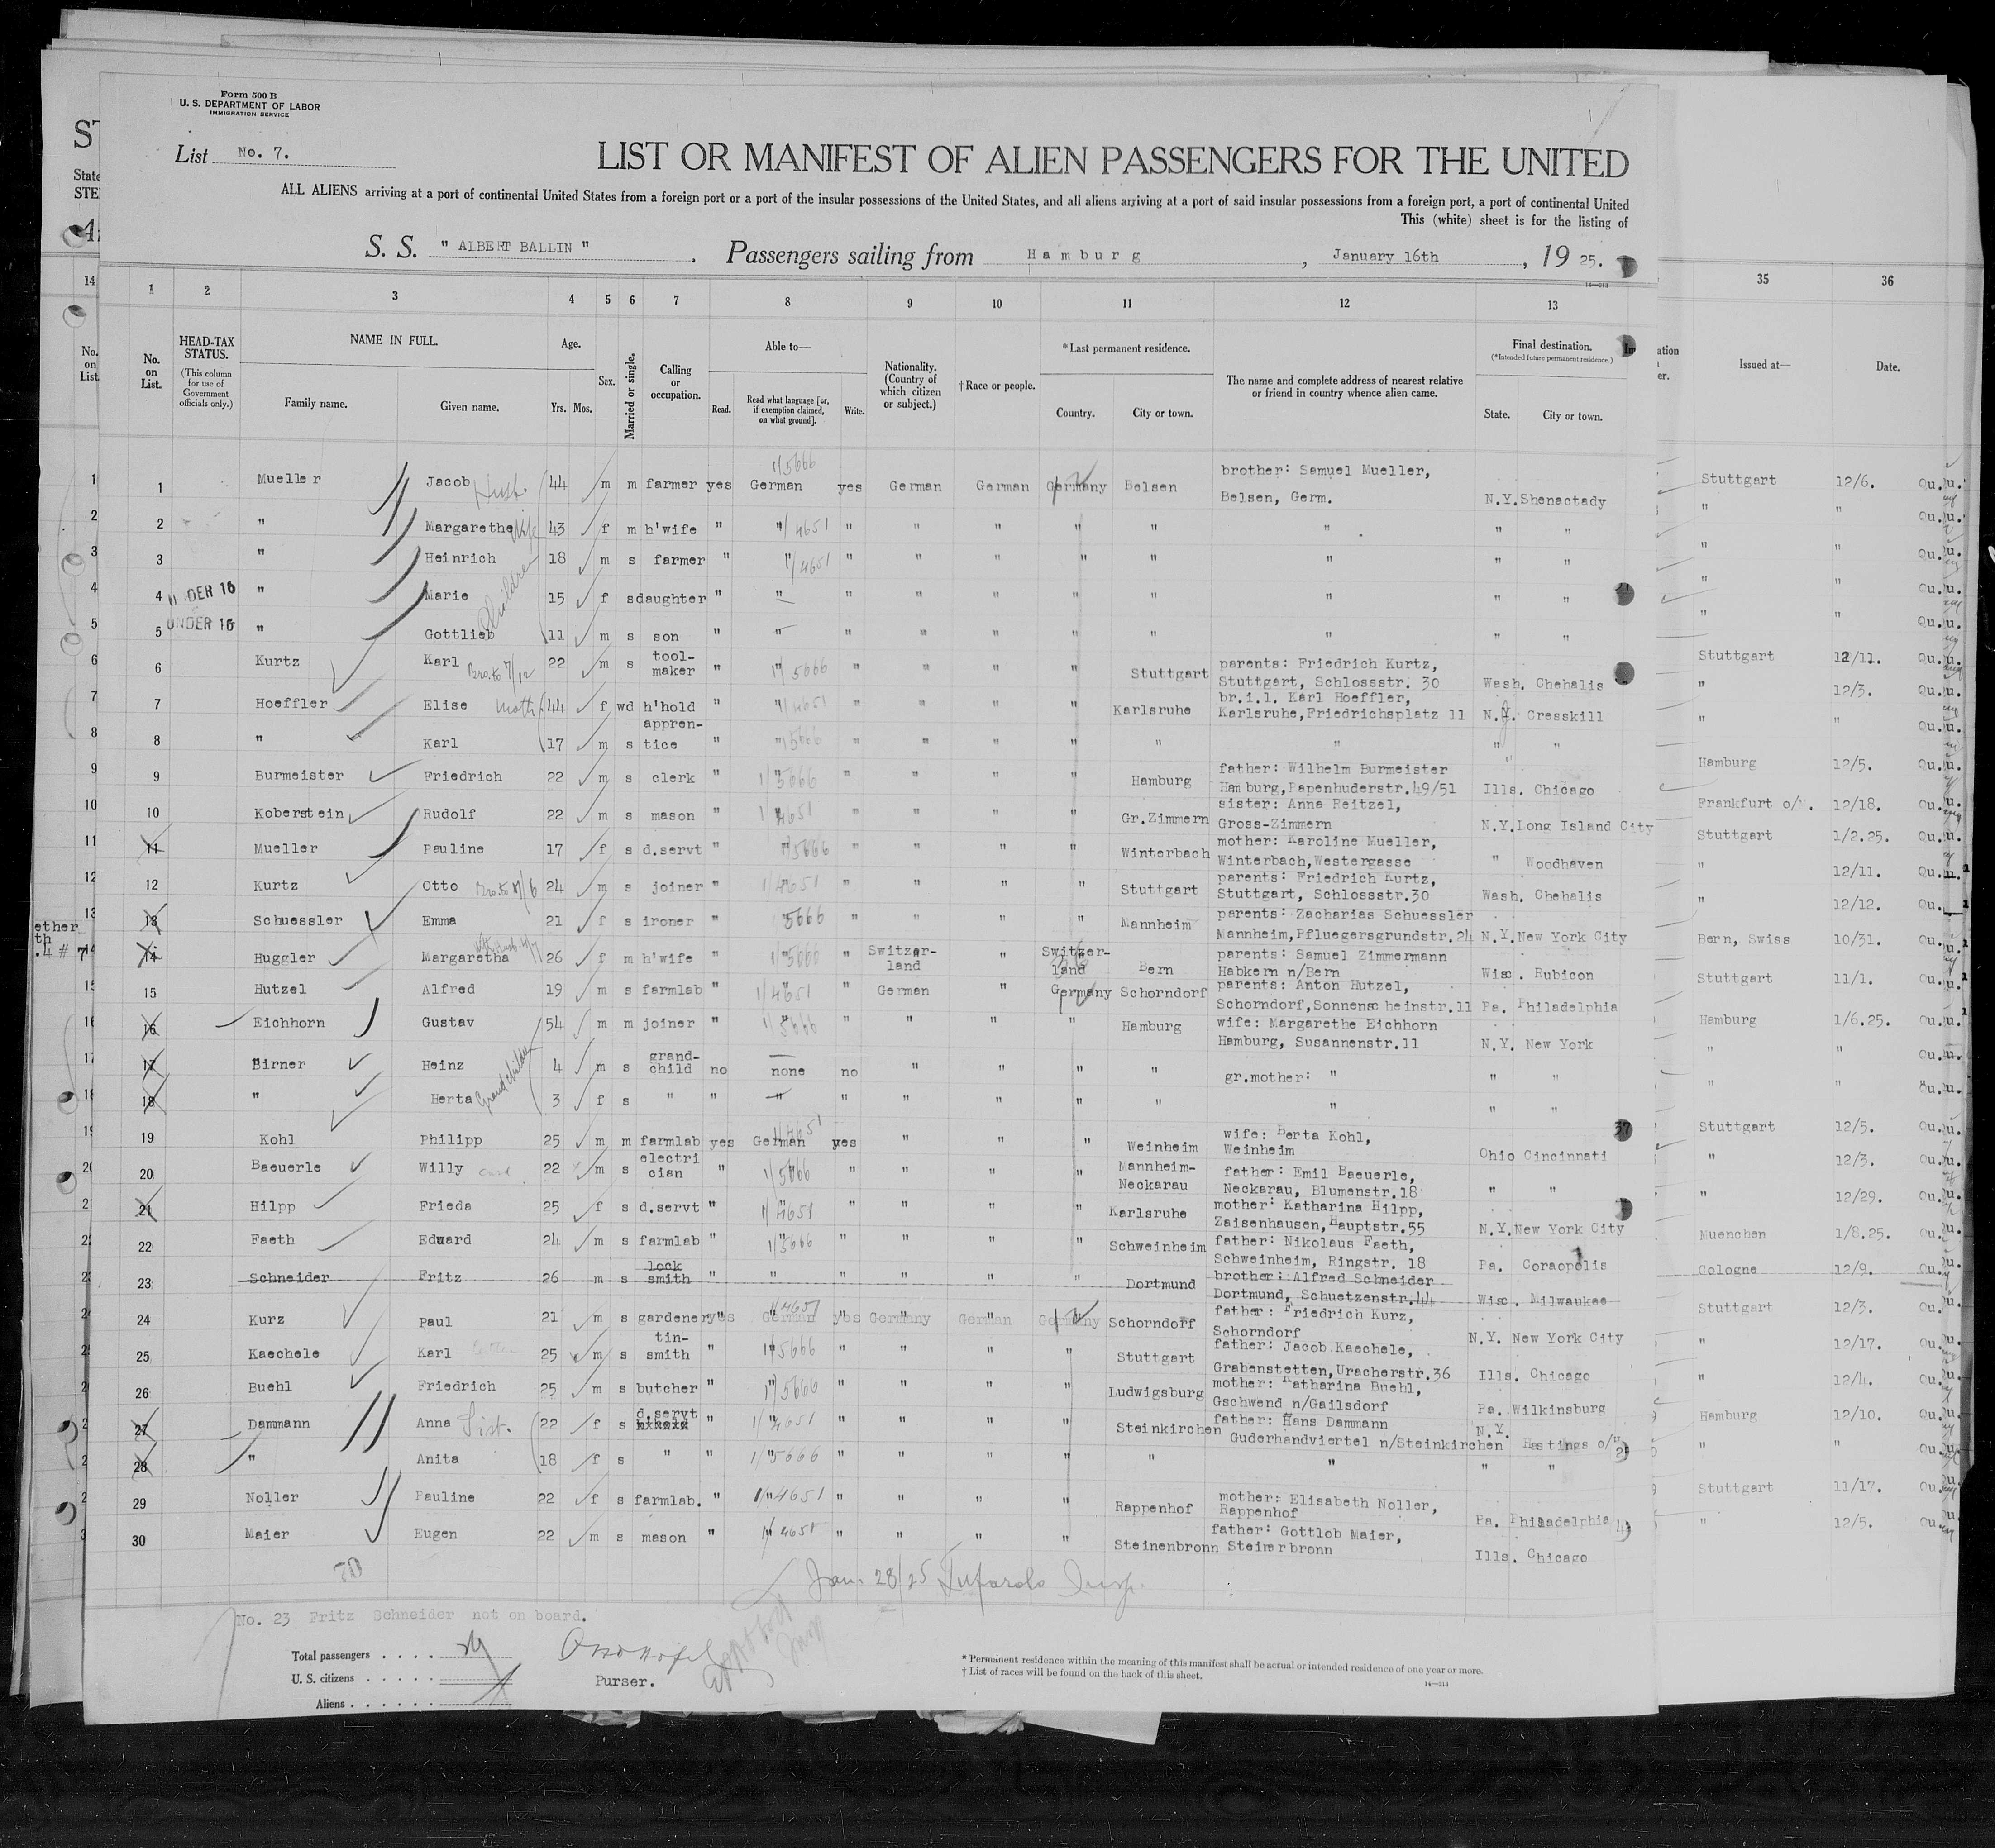 Form 500 B
U. S. DEPARTMENT OF LABOR
IMMIGRATION SERVICE
List No. 7.
LIST OR MANIFEST OF ALIEN PASSENGERS FOR THE UNITED
ALL ALIENS arriving at a port of continental United States from a foreign port or a port of the insular possessions of the United States, and all aliens arriving at a port of said insular possessions from a foreign port, a port of continental United
This (white) sheet is for the listing of
S. S. " ALBERT BALLIN " . Passengers sailing from Hamburg , January 16th , 19 25.
1 2 3 4 5 6 7 8 9 10 11 12 13 35 36
No. on List. HEAD-TAX STATUS. (This column for use of Government officials only.) NAME IN FULL. Family name. Given name. Age. Yrs. Mos. Sex. Married or single. Calling or occupation. Able to— Read. Read what language [or, if exemption claimed, on what ground]. Write. Nationality. (Country of which citizen or subject.) †Race or people. *Last permanent residence. Country. City or town. The name and complete address of nearest relative or friend in country whence alien came. Final destination. (*Intended future permanent residence.) State. City or town. Issued at— Date.
1 Mueller Jacob Husb. 44 m m farmer yes German 1/5666 yes German German Germany Belsen brother: Samuel Mueller, Belsen, Germ. N.Y. Shenactady Stuttgart 12/6. Qu.
2 " Margarethe Wife 43 f m h'wife " " 1/4651 " " " " " " " " " " Qu.
3 " Heinrich 18 m s farmer " " 1/4651 " " " " " " " " " " Qu.
4 UNDER 16 " Marie Children 15 f s daughter " " " " " " " " " " " " Qu.
5 UNDER 16 " Gottlieb 11 m s son " " " " " " " " " " " " Qu.
6 Kurtz Karl Bro. to 7/12 22 m s tool-maker " " 1/5666 " " " " Stuttgart parents: Friedrich Kurtz, Stuttgart, Schlossstr. 30 Wash. Chehalis Stuttgart 12/11. Qu.
7 Hoeffler Elise Moth. 44 f wd h'hold " " 4651 " " " " Karlsruhe br.i.l. Karl Hoeffler, Karlsruhe,Friedrichsplatz 11 N.J. Cresskill " 12/3. Qu.
8 " Karl 17 m s appren-tice " " 5666 " " " " " " " " " " Qu.
9 Burmeister Friedrich 22 m s clerk " " 1/5666 " " " " Hamburg father: Wilhelm Burmeister Hamburg,Papenhuderstr.49/51 Ills. Chicago Hamburg 12/5. Qu.
10 Koberstein Rudolf 22 m s mason " " 1/4651 " " " " Gr.Zimmern sister: Anna Reitzel, Gross-Zimmern N.Y.Long Island City Frankfurt o/M. 12/18. Qu.
11 Mueller Pauline 17 f s d.servt " " 5666 " " " " Winterbach mother: Karoline Mueller, Winterbach,Westergasse " Woodhaven Stuttgart 1/2.25. Qu.
12 Kurtz Otto Bro. to 7/6 24 m s joiner " " 1/4651 " " " " Stuttgart parents: Friedrich Kurtz, Stuttgart, Schlossstr.30 Wash. Chehalis " 12/11. Qu.
13 Schuessler Emma 21 f s ironer " 5666 " " " " Mannheim parents: Zacharias Schuessler Mannheim,Pfluegersgrundstr.24 N.Y.New York City " 12/12. Qu.
14 Huggler Margaretha 26 f m h'wife " " 1/5666 " Switzer-land " Switzer-land Bern parents: Samuel Zimmermann Habkern n/Bern Wisc. Rubicon Bern, Swiss 10/31. Qu.
15 Hutzel Alfred 19 m s farmlab " " 1/4651 " German " Germany Schorndorf parents: Anton Hutzel, Schorndorf,Sonnenscheinstr.11 Pa. Philadelphia Stuttgart 11/1. Qu.
16 Eichhorn Gustav 54 m m joiner " " 1/5666 " " " " Hamburg wife: Margarethe Eichhorn Hamburg, Susannenstr.11 N.Y. New York Hamburg 1/6.25. Qu.
17 Birner Heinz Grandchildren 4 m s grand-child no none no " " " " gr.mother: " " " " " Qu.
18 " Herta 3 f s " " " " " " " " " " " " " Qu.
19 Kohl Philipp 25 m m farmlab yes German 1/4651 yes " " " Weinheim wife: Berta Kohl, Weinheim Ohio Cincinnati Stuttgart 12/5. Qu.
20 Baeuerle Willy 22 m s electri cian " " 1/5666 " " " " Mannheim-Neckarau father: Emil Baeuerle, Neckarau, Blumenstr.18 " " " 12/3. Qu.
21 Hilpp Frieda 25 f s d.servt " " 1/4651 " " " " Karlsruhe mother: Katharina Hilpp, Zaisenhausen,Hauptstr.55 N.Y.New York City " 12/29. Qu.
22 Faeth Eduard 24 m s farmlab " " 1/5666 " " " " Schweinheim father: Nikolaus Faeth, Schweinheim, Ringstr. 18 Pa. Coraopolis Muenchen 1/8.25. Qu.
23 Schneider Fritz 26 m s lock smith " " " " " " Dortmund brother: Alfred Schneider Dortmund, Schuetzenstr.44 Wisc. Milwaukee Cologne 12/9. Qu.
24 Kurz Paul 21 m s gardener yes German 4651 yes Germany German Germany Schorndorf father: Friedrich Kurz, Schorndorf N.Y. New York City Stuttgart 12/3. Qu.
25 Kaechele Karl 25 m s tin-smith " " 1/5666 " " " " Stuttgart father: Jacob Kaechele, Grabenstetten,Uracherstr.36 Ills. Chicago " 12/17. Qu.
26 Buehl Friedrich 25 m s butcher " " 1/5666 " " " " Ludwigsburg mother: Katharina Buehl, Gschwend n/Gailsdorf Pa. Wilkinsburg " 12/4. Qu.
27 Dammann Anna Sist. 22 f s d.servt " " 1/4651 " " " " Steinkirchen father: Hans Dammann Guderhandviertel n/Steinkirchen N.Y. Hastings o/H Hamburg 12/10. Qu.
28 " Anita 18 f s " " " 1/5666 " " " " " " " " " " Qu.
29 Noller Pauline 22 f s farmlab. " " 1/4651 " " " " Rappenhof mother: Elisabeth Noller, Rappenhof Pa. Philadelphia Stuttgart 11/17. Qu.
30 Maier Eugen 22 m s mason " " 1/4651 " " " " Steinenbronn father: Gottlob Maier, Steinerbronn Ills. Chicago " 12/5. Qu.
Jan. 28/25
No. 23 Fritz Schneider not on board.
Total passengers . . . .
U. S. citizens . . . . .
Purser.
Aliens . . . . . .
* Permanent residence within the meaning of this manifest shall be actual or intended residence of one year or more.
† List of races will be found on the back of this sheet.
14—213